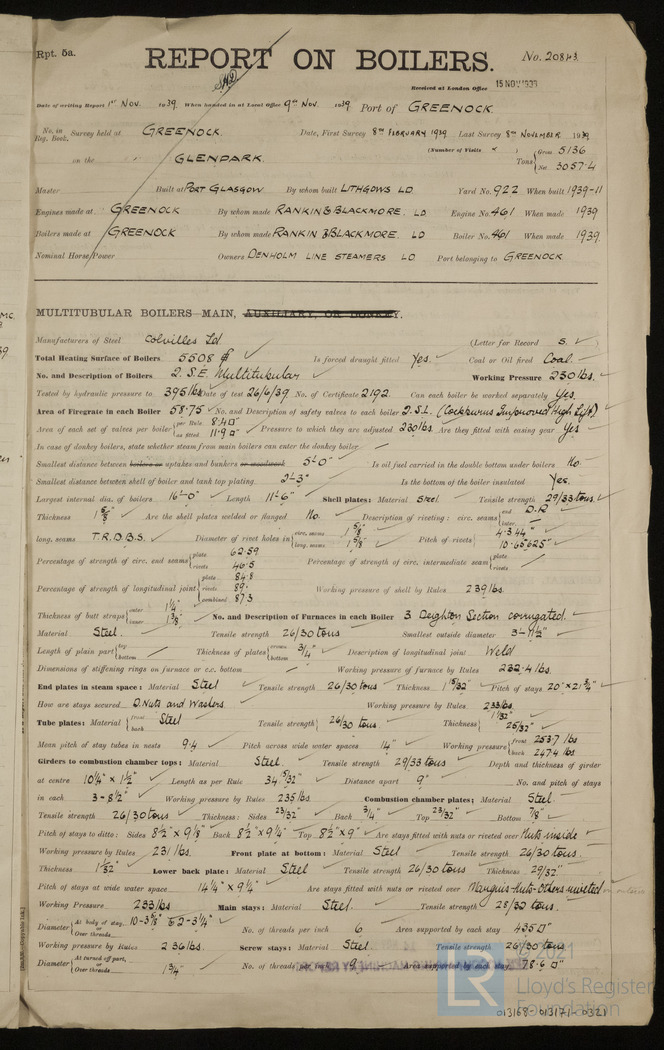 Rpt. 5a.
REPORT ON BOILERS.
No. 20843
Received at London Office 15 NOV 1939
Date of writing Report 1st Nov. 1939. When handed in at Local Office 9th Nov. 1939 Port of GREENOCK.
No. in Reg. Book. Survey held at GREENOCK. Date, First Survey 8th FEBRUARY 1939 Last Survey 8th NOVEMBER 1939
(Number of Visits )
on the GLENPARK. Tons { Gross 5136 Net 3057.4
Master Built at PORT GLASGOW By whom built LITHGOWS LD Yard No. 922 When built 1939-11
Engines made at GREENOCK By whom made RANKIN & BLACKMORE. LD Engine No. 461 When made 1939
Boilers made at GREENOCK By whom made RANKIN & BLACKMORE. LD Boiler No. 461 When made 1939.
Nominal Horse Power Owners DENHOLM LINE STEAMERS LD Port belonging to GREENOCK
MULTITUBULAR BOILERS MAIN, AUXILIARY, OR DONKEY.
Manufacturers of Steel Colvilles Ld (Letter for Record S. )
Total Heating Surface of Boilers 5508 Is forced draught fitted Yes. Coal or Oil fired Coal.
No. and Description of Boilers 2. S.E. Multitubular Working Pressure 230 lbs.
Tested by hydraulic pressure to 395 lbs Date of test 26/6/39. No. of Certificate 2192. Can each boiler be worked separately Yes.
Area of Firegrate in each Boiler 58.75 No. and Description of safety valves to each boiler 2. S.L. (Cockburns Improved High Lift)
Area of each set of valves per boiler { per Rule 8.40" as fitted 11.90" Pressure to which they are adjusted 230 lbs. Are they fitted with easing gear Yes
In case of donkey boilers, state whether steam from main boilers can enter the donkey boiler
Smallest distance between boilers or uptakes and bunkers or woodwork 5'-0" Is oil fuel carried in the double bottom under boilers No.
Smallest distance between shell of boiler and tank top plating 2'-3" Is the bottom of the boiler insulated Yes.
Largest internal dia. of boilers 16'-0" Length 11'-6" Shell plates: Material Steel Tensile strength 29/33 tons.
Thickness 1 5/8" Are the shell plates welded or flanged No. Description of riveting: circ. seams { end D.R inter.
long. seams T.R.D.B.S. Diameter of rivet holes in { circ. seams 1 5/8" long. seams 1 5/8" Pitch of rivets { 4.344" 10.65625"
Percentage of strength of circ. end seams { plate 62.59 rivets 46.5 Percentage of strength of circ. intermediate seam { plate rivets
Percentage of strength of longitudinal joint { plate 84.8 rivets 89. combined 87.3 Working pressure of shell by Rules 239 lbs.
Thickness of butt straps { outer 1 1/4" inner 1 3/8" No. and Description of Furnaces in each Boiler 3 Deighton Section corrugated.
Material Steel. Tensile strength 26/30 tons Smallest outside diameter 3'-7 1/2"
Length of plain part { top bottom Thickness of plates { crown bottom 3/4" Description of longitudinal joint Weld
Dimensions of stiffening rings on furnace or c.c. bottom Working pressure of furnace by Rules 232.4 lbs
End plates in steam space: Material Steel Tensile strength 26/30 tons Thickness 1 15/32" Pitch of stays 20" x 21 3/4"
How are stays secured D. Nuts and Washers. Working pressure by Rules 233 lbs.
Tube plates: Material { front back Steel Tensile strength { 26/30 tons Thickness { 1 1/32" 25/32"
Mean pitch of stay tubes in nests 9.4 Pitch across wide water spaces 14" Working pressure { front 253.7 lbs back 247.4 lbs
Girders to combustion chamber tops: Material Steel. Tensile strength 29/33 tons Depth and thickness of girder
at centre 10 1/4" x 1 1/2" Length as per Rule 34 15/32" Distance apart 9" No. and pitch of stays
in each 3 - 8 1/2" Working pressure by Rules 235 lbs Combustion chamber plates: Material Steel.
Tensile strength 26/30 tons Thickness: Sides 23/32" Back 3/4" Top 23/32" Bottom 7/8"
Pitch of stays to ditto: Sides 8 1/2" x 9 1/8" Back 8 1/2" x 9 1/4" Top 8 1/2" x 9" Are stays fitted with nuts or riveted over Nuts inside
Working pressure by Rules 231 lbs. Front plate at bottom: Material Steel Tensile strength 26/30 tons.
Thickness 1 1/32" Lower back plate: Material Steel Tensile strength 26/30 tons Thickness 29/32"
Pitch of stays at wide water space 14 1/4" x 9 1/4" Are stays fitted with nuts or riveted over Margins-Nuts-Others riveted
Working Pressure 233 lbs Main stays: Material Steel. Tensile strength 28/32 tons.
Diameter { At body of stay, or Over threads 10-3 3/8" 2-3 1/4" No. of threads per inch 6 Area supported by each stay 435 □"
Working pressure by Rules 236 lbs. Screw stays: Material Steel. Tensile strength 26/30 tons.
Diameter { At turned off part, or Over threads 1 3/4" No. of threads per inch 9 Area supported by each stay 78.6 □"
© 2021
Lloyd's Register
Foundation
013168-013171-0321